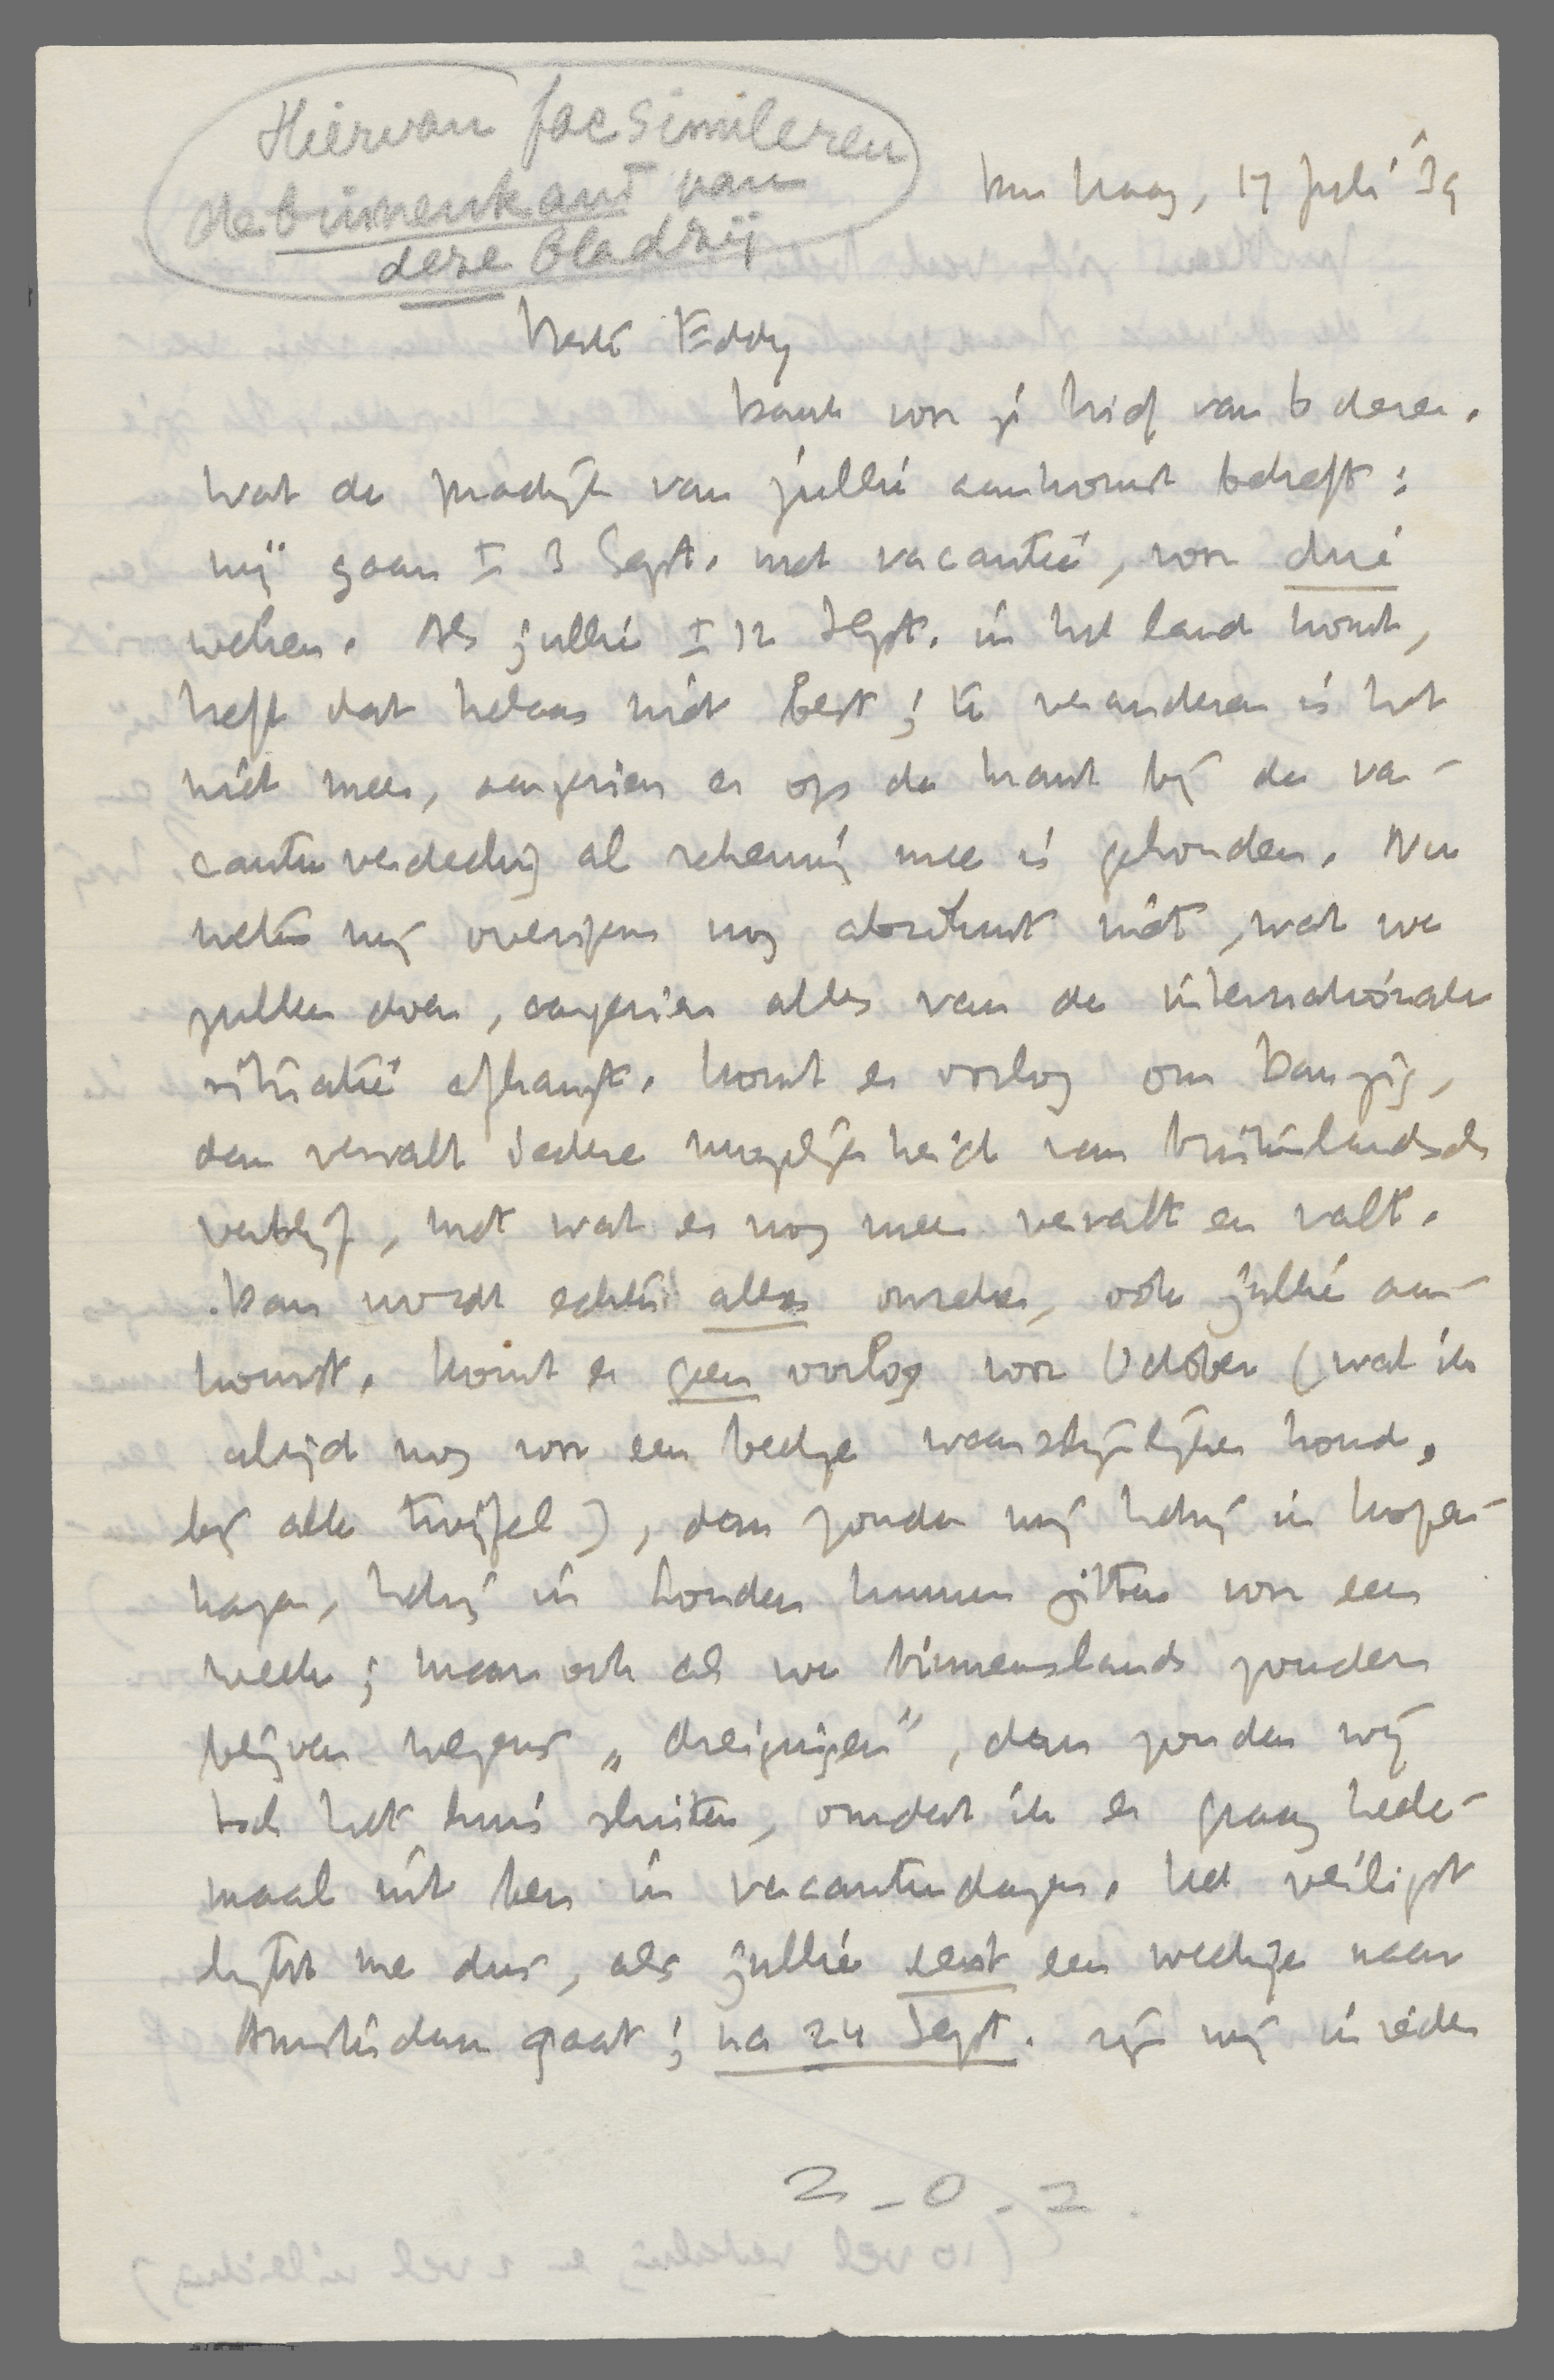 Hiervan facsimileren
de binnenkant van
deze bladzij
Den Haag, 17 Juli '39
Beste Eddy
Dank voor je brief van 6 dezer.
Wat de practijk van jullie aankomst betreft:
wij gaan ± 3 Sept. met vacantie, voor drie
weken. Als jullie ± 12 Sept. in het land komt,
treft dat helaas niet best; te veranderen is het
niet meer, aangezien er op de krant bij de va-
cantieverdeeling al rekening mee is gehouden. Nu
weten wij overigens nog absoluut niet, wat we
zullen doen, aangezien alles van de internationale
situatie afhangt. Komt er oorlog om Danzig,
dan vervalt iedere mogelijkheid van buitenlandsch
verblijf, met wat er nog meer vervalt en valt.
Dan wordt echter alles onzeker, ook jullie aan-
komst. Komt er geen oorlog voor October (wat ik
altijd nog voor een beetje waarschijnlijker houd,
bij alle twijfel), dan zouden wij hetzij in Kopen-
hagen, hetzij in Londen kunnen zitten voor een
week; maar ook als we binnenslands zouden
blijven wegens „dreigingen”, dan zouden wij
toch het huis sluiten, omdat ik er graag hele-
maal uit ben in vacantiedagen. Het veiligst
lijkt me dus, als jullie eerst een weekje naar
Amsterdam gaat; na 24 Sept. zijn wij in ieder
Z.O.Z.